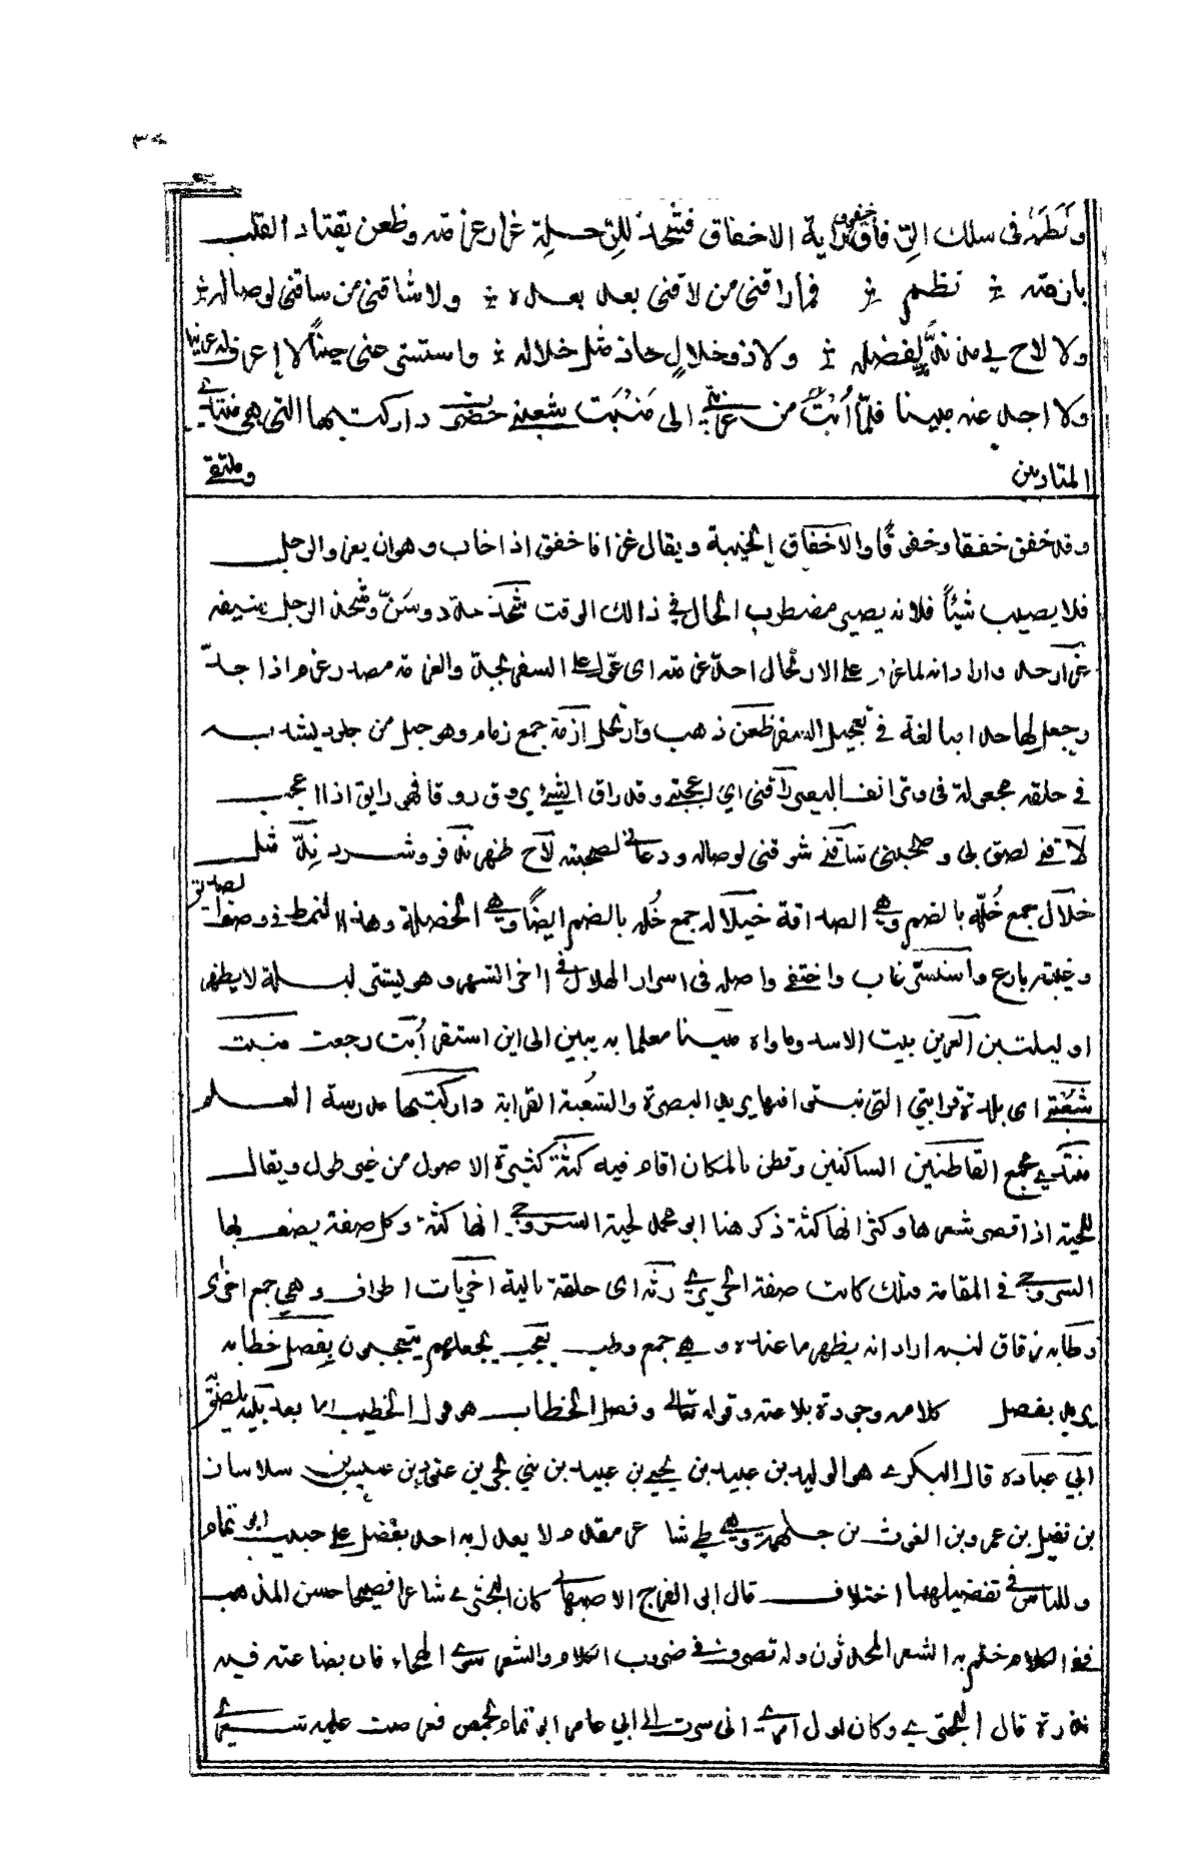 ٣٤
ونظمه في سلك الرفاق وخفوق راية الاخفاق فشحذ للرحلة غرار عزمته وظعن يقتاد القلب
بازمته نظم فما راقني من لاقني بعد بعده ولا شاقني من ساقني لوصاله
ولا لاح لي مذ ندّ ندّ لفضله ولا ذو خلال حاز مثل خلاله واستسر عني حينًا لا اعرف له عرينا
ولا اجد عنه مبينا فلمّا اُبْتُ من غربتي الى مَنْبَت شعبتي حضرت دار كتبها التي هي منتدى
المتادبين وملتقى
وقد خفق خفقا وخفوقًا والاخفاق الخيبة ويقال غزا فاخفق اذا خاب وهو ان يغزو الرجل
فلا يصيب شيئًا فلانه يصير مضطرب الحال في ذالك الوقت شحذ حدد وسنّ وشحذ الرجل سيفه
غرار حد واراد انه لما عزم على الارتحال احدّ عزمته اى عوّل على السفر بجد والعزمة مصدر عزم اذا جدّ
وجعل لها حدا مبالغة في تعجيل السفر ظعن ذهب وارتحل ازمة جمع زمام وهو حبل من جلود يشد به
في حلقه مجعولة في وترة انف البعير راقني اي اعجبني وقد راق الشيئ يروق روقا فهو رايق اذا اعجب
لاقني لصق بي وصحبني شاقني شوقني لوصاله ودعاني لصحبته لاح ظهر ندّ فر وشرد نِدّ مثل
خلال جمع خُلّة بالضم وهي الصداقة خلاله جمع خلة بالضم ايضًا وهي الخصلة وهذا النمط في وصف الصديق
وغيبته بارع واستسرّ غاب واختفى واصله في اسرار الهلال في اخر الشهر وهو يستتر ليلة لا يظهر
او ليلتين العرين بيت الاسد وماواه مبينا معلما به يبين الى اين استقر اُبت رجعت منبت
شعبتي اى بلدة قرابتي التي نبتوا فيها يريد البصرة والشعبة القرابة دار كتبها مدرسة العلم
منتدى مجمع القاطنين الساكنين وقطن بالمكان اقام فيه كثة كثيرة الاصول من غير طول ويقال
للحية اذا قصر شعرها وكثر انها كثة ذكر هنا ابو محمد لحية السروجي انها كثة وكل صفة يصف بها
السروجي في المقامة فتلك كانت صفة الحريري رثه اى حلقة بالية اخريات اطراف وهي جمع اخرى
وطابه زقاق لبنه اراد انه يظهر ما عنده وهي جمع وطب يعجب يجعلهم يتعجبون بفصل خطابه
يريد بفصل كلامه وجودة بلاغته وقوله تعالى وفصل الخطاب هو قول الخطيب اما بعد
ابي عبادة قال البكري هو الوليد بن عبيد بن يحيى بن عبيد بن بن سلامان
بن نفيل بن عمرو بن الغوث بن جلهمة وهي طي شاعر مقدم لا يعدل به احد يفضل على حبيب ابي تمام
وللناس في تفضيلهما اختلاف قال ابي الفرج الاصبهاني كان البحتري شاعرا فصيحا حسن المذهب
نقي الكلام ختم به الشعر المحدثون وله تصرف في ضروب الكلام والشعر سوى الهجاء فان بضاعته فيه
نزرة قال البحتري وكان اول امري اني سرت الى ابي تمام بحمص فعرضت عليه شعري